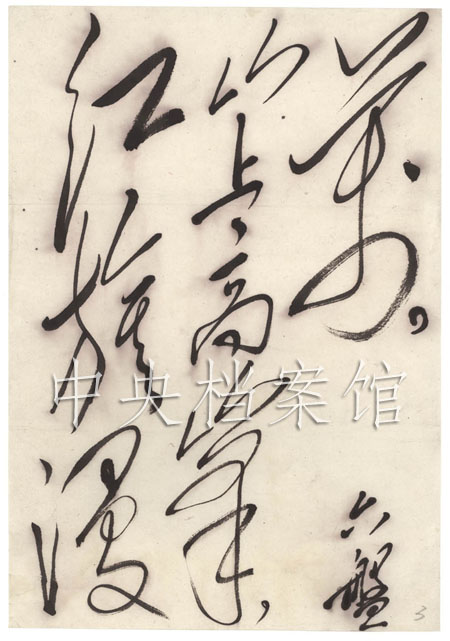 萬。
六盤
山上高峯，
红旗漫
中央档案馆
3